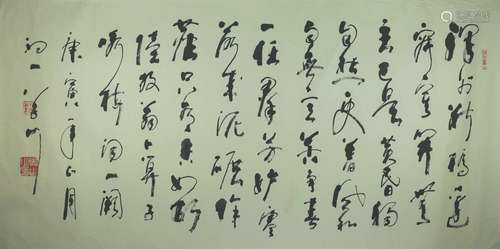 驛外斷橋邊
寂寞開無
主已是黃昏獨
自愁更著風和
雨無意苦爭春
一任群芳妒零
落成泥碾作
塵只有香如故
陸放翁卜算子
咏梅詞一闋
庚寅年正月
初一